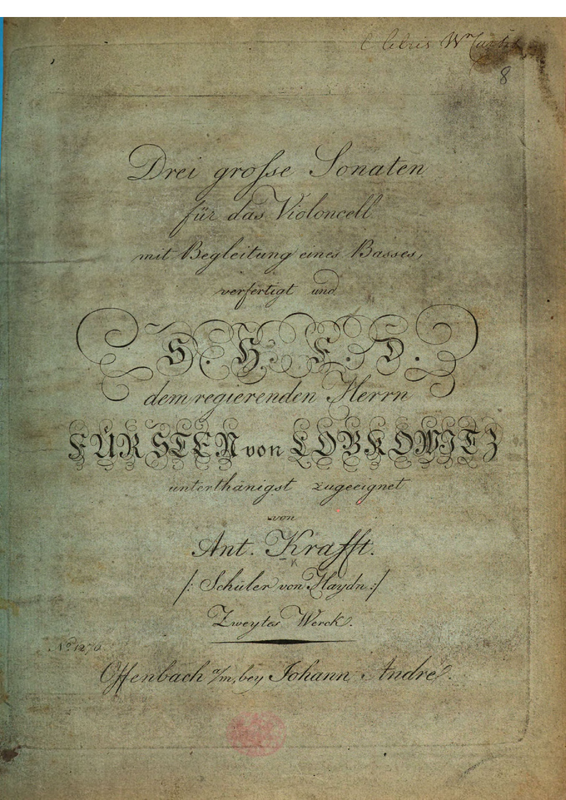 8
Drei grosse Sonaten
für das Violoncell
mit Begleitung eines Basses,
verfertigt und
S. H. F. D.
dem regierenden Herrn
FÜRSTEN von LOBKOWITZ
unterthänigst zugeeignet
von
Ant. Krafft.
/: Schüler von Haydn :/
Zweytes Werck.
Offenbach a/m, bey Johann André.